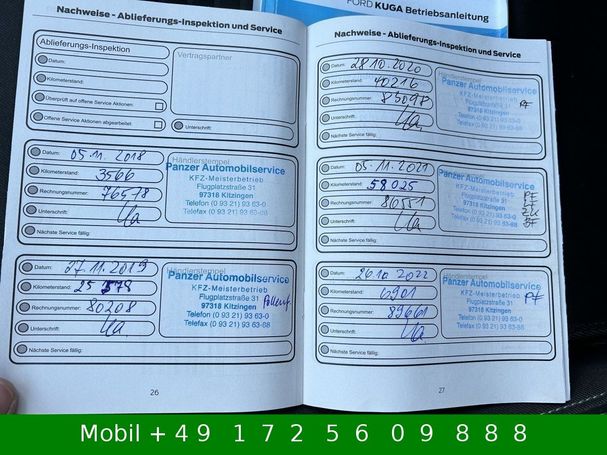 FORD KUGA Betriebsanleitung
Nachweise - Ablieferungs-Inspektion und Service
Ablieferungs-Inspektion
Datum:
Kilometerstand:
Überprüft auf offene Service Aktionen:
Offene Service Aktionen abgearbeitet:
Vertragspartner:
Unterschrift:
Datum: 05.11.2018
Kilometerstand: 3566
Rechnungsnummer: 76578
Unterschrift:
Nächste Service fällig:
Händlerstempel
Panzer Automobilservice
KFZ-Meisterbetrieb
Flugplatzstraße 31
97318 Kitzingen
Telefon (0 93 21) 93 63-0
Telefax (0 93 21) 93 63-88
Datum: 27.11.2019
Kilometerstand: 25
Rechnungsnummer: 80208
Unterschrift:
Nächste Service fällig:
Händlerstempel
Panzer Automobilservice
KFZ-Meisterbetrieb
Flugplatzstraße 31
97318 Kitzingen
Telefon (0 93 21) 93 63-0
Telefax (0 93 21) 93 63-88
26
Nachweise - Ablieferungs-Inspektion und Service
Datum: 28.10.2020
Kilometerstand: 40216
Rechnungsnummer: 83098
Unterschrift:
Nächste Service fällig:
Händlerstempel
Panzer Automobilservice
KFZ-Meisterbetrieb
Flugplatzstraße 31
97318 Kitzingen
Telefon (0 93 21) 93 63-0
Telefax (0 93 21) 93 63-88
Datum: 05.11.2021
Kilometerstand: 58025
Rechnungsnummer: 86551
Unterschrift:
Nächste Service fällig:
Händlerstempel
Panzer Automobilservice
KFZ-Meisterbetrieb
Flugplatzstraße 31
97318 Kitzingen
Telefon (0 93 21) 93 63-0
Telefax (0 93 21) 93 63-88
Datum: 26.10.2022
Kilometerstand: 6901
Rechnungsnummer: 89661
Unterschrift:
Nächste Service fällig:
Händlerstempel
Panzer Automobilservice
KFZ-Meisterbetrieb
Flugplatzstraße 31
97318 Kitzingen
Telefon (0 93 21) 93 63-0
Telefax (0 93 21) 93 63-88
27
Mobil +49 172 5609888